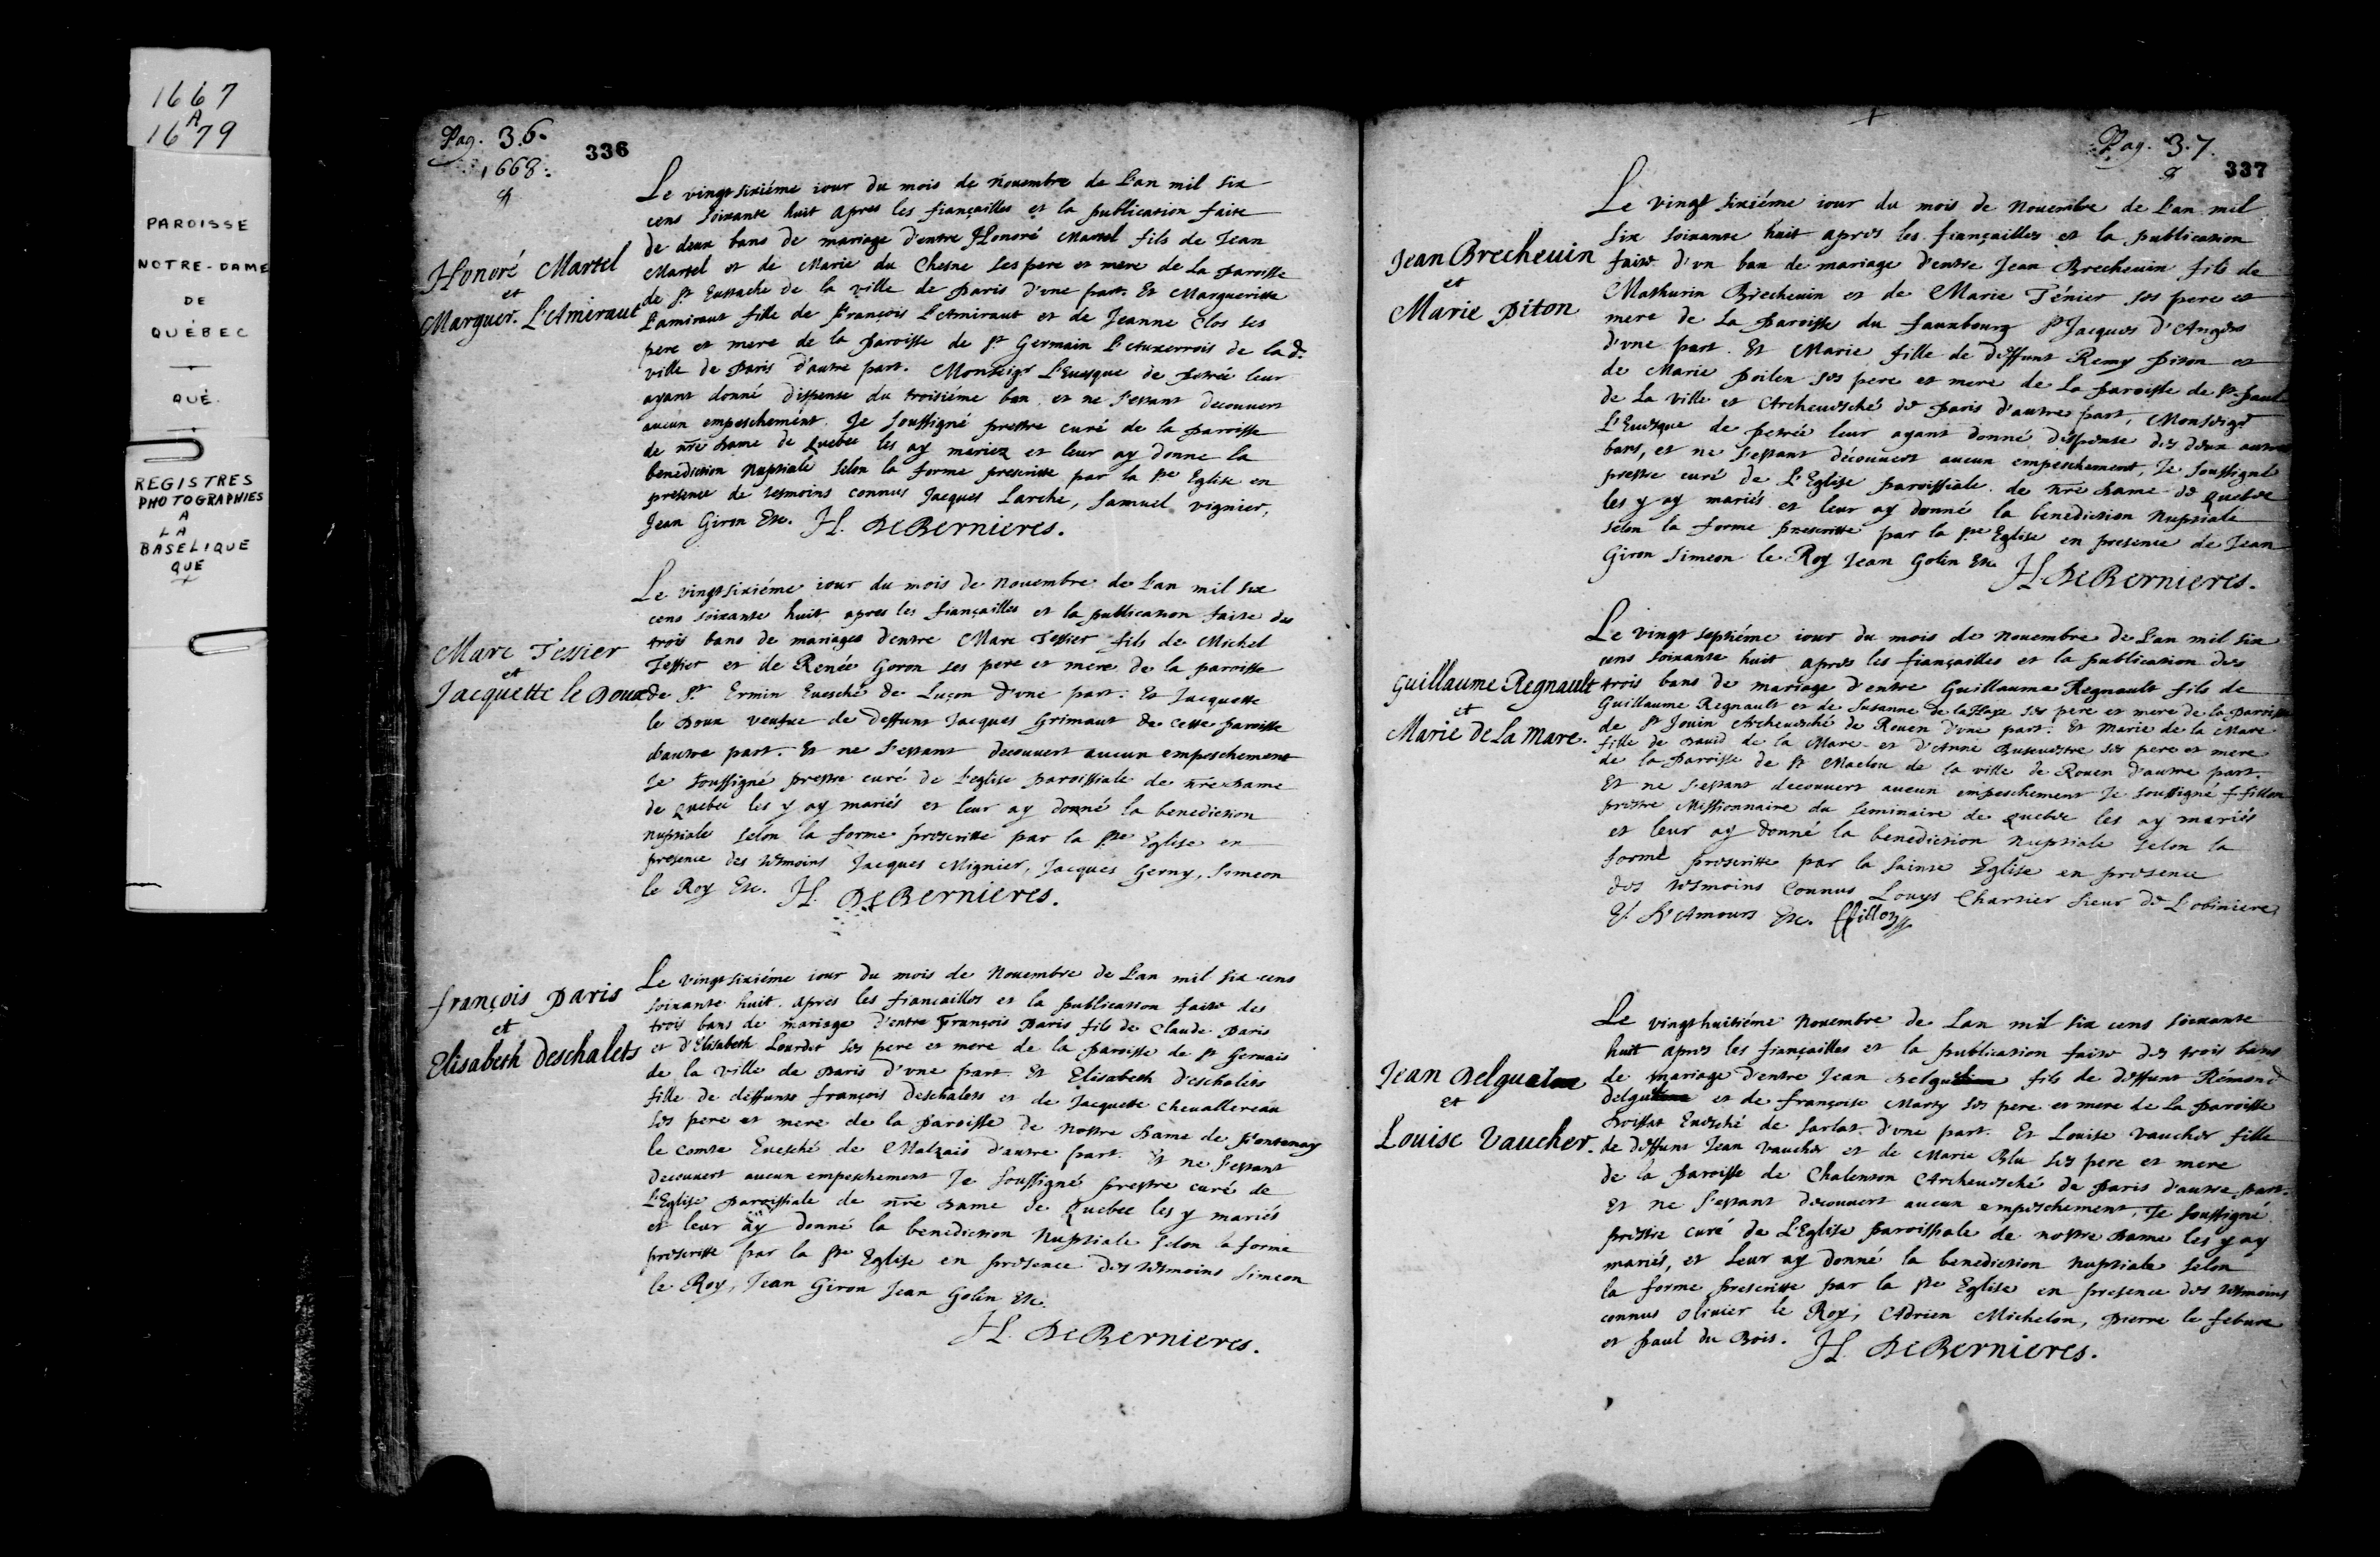 1667
A
1679
PAROISSE
NOTRE-DAME
DE
QUÉBEC
QUÉ.
REGISTRES
PHOTOGRAPHIES
A
LA
BASELIQUE
QUE
Pag. 36.
336
1668.
Honoré Martel
et
Marguer. L'Amiraut
Le vingt sixiéme iour du mois de Nouembre de L'an mil six
cens soixante huit apres les fiançailles et la publication faite
de deux bans de mariage d'entre Honoré Martel fils de Jean
Martel et de Marie du Chesne ses pere et mere de La paroisse
de St Eustache de la ville de Paris d'vne part. Et Margueritte
L'amiraut fille de François L'Amiraut et de Jeanne Clos ses
pere et mere de la paroisse de St Germain L'Auxerrois de lade
ville de Paris d'autre part. Monseigr L'Euesque de Petrée leur
ayant donné dispense du troisiéme ban et ne s'estant decouuert
aucun empeschemént. Je soussigné prestre curé de la paroisse
de nre Dame de Quebec les ay mariez et leur ay donne la
benediction Nuptiale selon la forme prescritte par la Ste Eglise en
presence de tesmoins connus Jacques Larche, Samuel vignier,
Jean Giron Etc. H. DeBernieres.
Marc Tessier
et
Jacquette le Doux
Le vingtsixiéme iour du mois de Nouembre de L'an mil six
cens soixante huit apres les fiançailles et la publication faite des
trois bans de mariages d'entre Marc Tessier fils de Michel
Tessier et de Renée Goron ses pere et mere de la paroisse
de St Ermin Euesché de Luçon d'vne part. Et Jacquette
le Doux veufue de deffunt Jacques Grimaut de cette paroisse
d'autre part. Et ne s'estant decouuert aucun empeschement
Je soussigné prestre curé de L'eglise paroissiale de nre Dame
de Quebec les y ay mariés et leur ay donné la benediction
nuptiale selon la forme prescritte par la Ste Eglise en
presence des tesmoins Jacques Mignier, Jacques Gerny, Simeon
le Roy Etc. H. DeBernieres.
françois Paris
et
Elisabeth deschalets
Le vingtsixiéme iour du mois de Nouembre de L'an mil six cens
soixante huit apres les fiancailles et la publication faite des
trois bans de mariage d'entre François Paris fils de Claude Paris
et d'Elisabeth Lourdet ses pere et mere de la paroisse de St Geruais
de la ville de Paris d'vne part. Et Elisabeth d'eschalets
fille de deffunts françois Deschalets et de Jacquette Cheuallereau
ses pere et mere de la paroisse de Nostre Dame de Fontenay
le Comte Euesché de Malzais d'autre part. Et ne s'estant
decouuert aucun empeschement Je soussigné prestre curé de
L'Eglise paroissiale de nre Dame de Quebec les y mariés
et leur ay donné la benediction Nuptiale selon la forme
prescritte par la Ste Eglise en presence des tesmoins Simeon
le Roy, Jean Giron Jean Golin Etc.
H. DeBernieres.
Pag. 37.
337
Jean Brecheuin
et
Marie Piton
Le vingt sixiéme iour du mois de Nouembre de L'an mil
six soixante huit apres les fiançailles et la publication
faite d'vn ban de mariage d'entre Jean Brecheuin fils de
Mathurin Brecheuin et de Marie Ténier ses pere et
mere de La paroisse du fauxbourg St Jacques d'Angers
d'vne part. Et Marie fille de deffunt Remy Piton et
de Marie Poilen ses pere et mere de La paroisse de St Paul
de La ville et Archeuesché de Paris d'autre part, Monseigr
L'Euesque de petrée leur ayant donné dispense des deux autres
bans, et ne s'estant découuert aucun empeschement, Je soussigné
prestre curé de L'Eglise paroissiale de nre Dame de Quebec
les y ay mariés et leur ay donné la benediction Nuptiale
selon la forme prescritte par la Ste Eglise en presence de Jean
Giron Simeon le Roy Jean Golin Etc. H. DeBernieres.
Guillaume Regnault
et
Marie de La Mare.
Le vingt septiéme iour du mois de nouembre de L'an mil six
cens soixante huit apres les fiançailles et la publication des
trois bans de mariage d'entre Guillaume Regnault fils de
Guillaume Regnault et de Susanne de la Haye ses pere et mere de la Paroisse
de St Jouin Archeuesché de Rouen d'vne part. Et Marie de la Mare
fille de Dauid de la Mare et d'Anne Buseuestre ses pere et mere
de la Parroisse de St Maclou de la ville de Rouen d'autre part.
Et ne s'estant decouuert aucun empeschement Je soussigné f fillon
prestre Missionnaire du seminaire de Quebec les ay mariés
et leur ay donné la benediction Nuptiale selon la
forme prescritte par la sainte Eglise en presence
des tesmoins Connus Louys Chartier sieur de Lobiniere
Et D'Amours Etc. ffillon
Jean Delguel
et
Louise Vaucher.
Le vingthuitiéme Nouembre de Lan mil six cens soixante
huit apres les fiançailles et la publication faite des trois bans
de mariage d'entre Jean Delguel fils de deffunt Rémond
Delguel et de françoise Marty ses pere et mere de La paroisse
Euesché de sarlat d'vne part. Et Louise Vaucher fille
de deffunt Jean Vaucher et de Marie Blu ses pere et mere
de la paroisse de Chalenton Archeuesché de Paris d'autre part.
Et ne s'estant decouuert aucun empeschement, Je soussigné
prestre curé de L'Eglise paroissiale de nostre Dame les y ay
mariés, et leur ay donné la benediction nuptiale selon
la forme prescritte par la Ste Eglise en presence des tesmoins
connus Oliuier le Roy, Adrien Michelon, Pierre le febure
et Paul du Bois. H. DeBernieres.